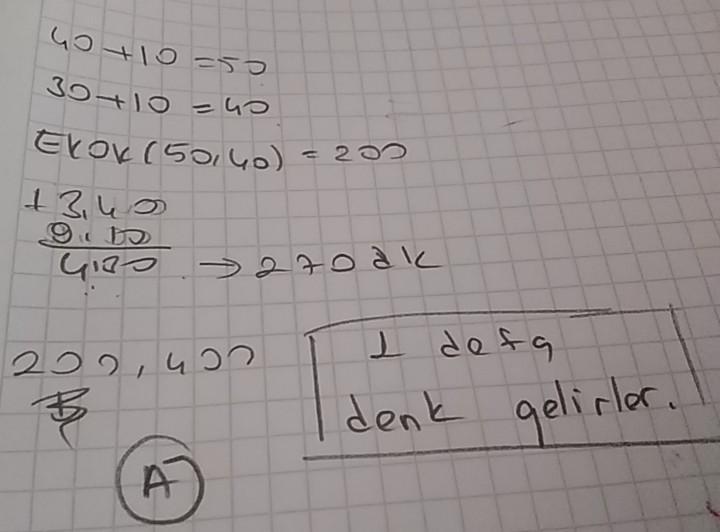 40+10=50
30+10=40
EKOK(50,40)=200
13.40
9.10
4.30 → 270 dk
200, 400
1 defa
denk gelirler.
A